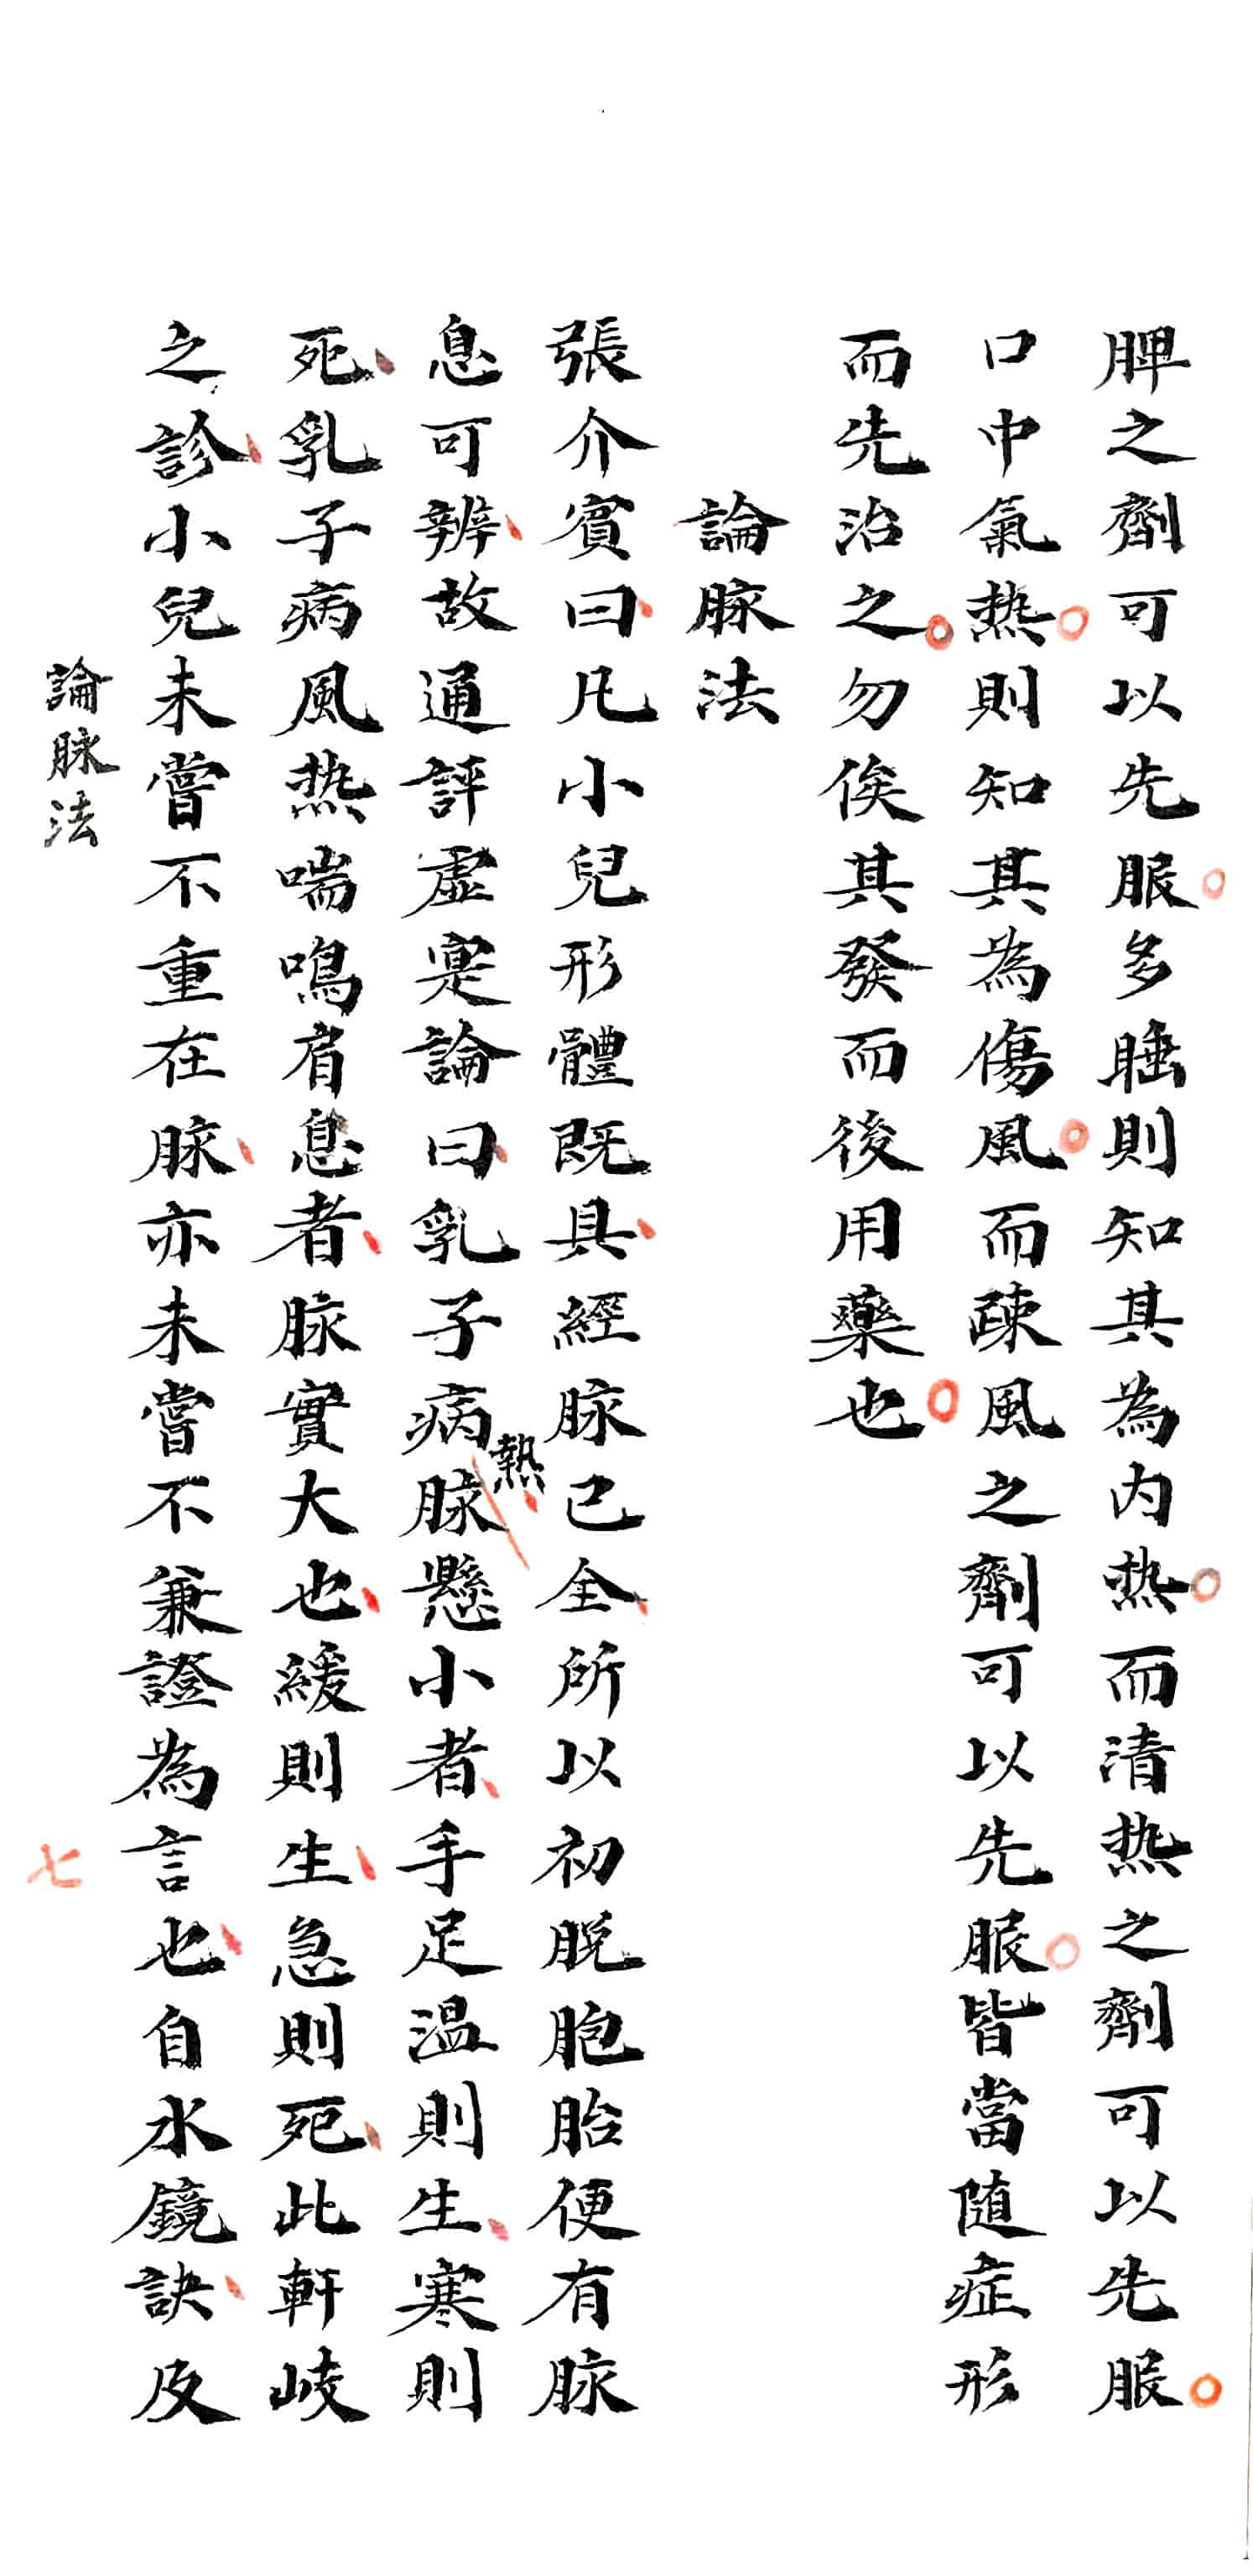 脾之劑可以先服多睡則知其為内热而清热之劑可以先服
口中氣热則知其為傷風而疎風之劑可以先服皆當随症形
而先治之勿俟其發而後用藥也
論脉法
張介賓曰凡小兒形體既具經脉已全所以初脱胞胎便有脉
息可辨故通評虛寔論曰乳子病熱脉懸小者手足温則生寒則
死乳子病風热喘鳴肩息者脉實大也緩則生急則死此軒岐
之診小兒未嘗不重在脉亦未嘗不兼證為言也自水鏡訣及
論脉法
七